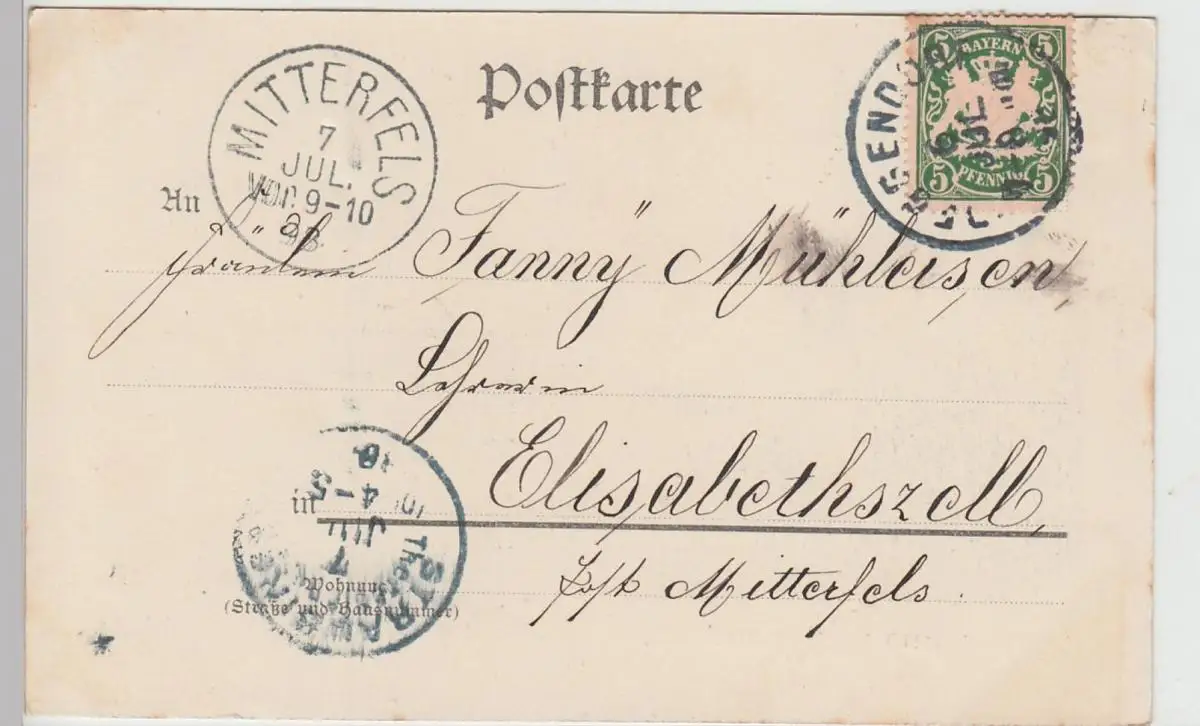 Postkarte
BAYERN
5 5
PFENNIG
5 5
DEGGENDORF
6 JUL
MITTERFELS
7
JUL.
VOR. 9-10
98
An
Fräulein Fanny Mühleisen,
Lehrerin
in Elisabethszell,
Post Mitterfels.
Wohnung
(Straße und Hausnummer)
STRAUBING
7
JUL
4-5